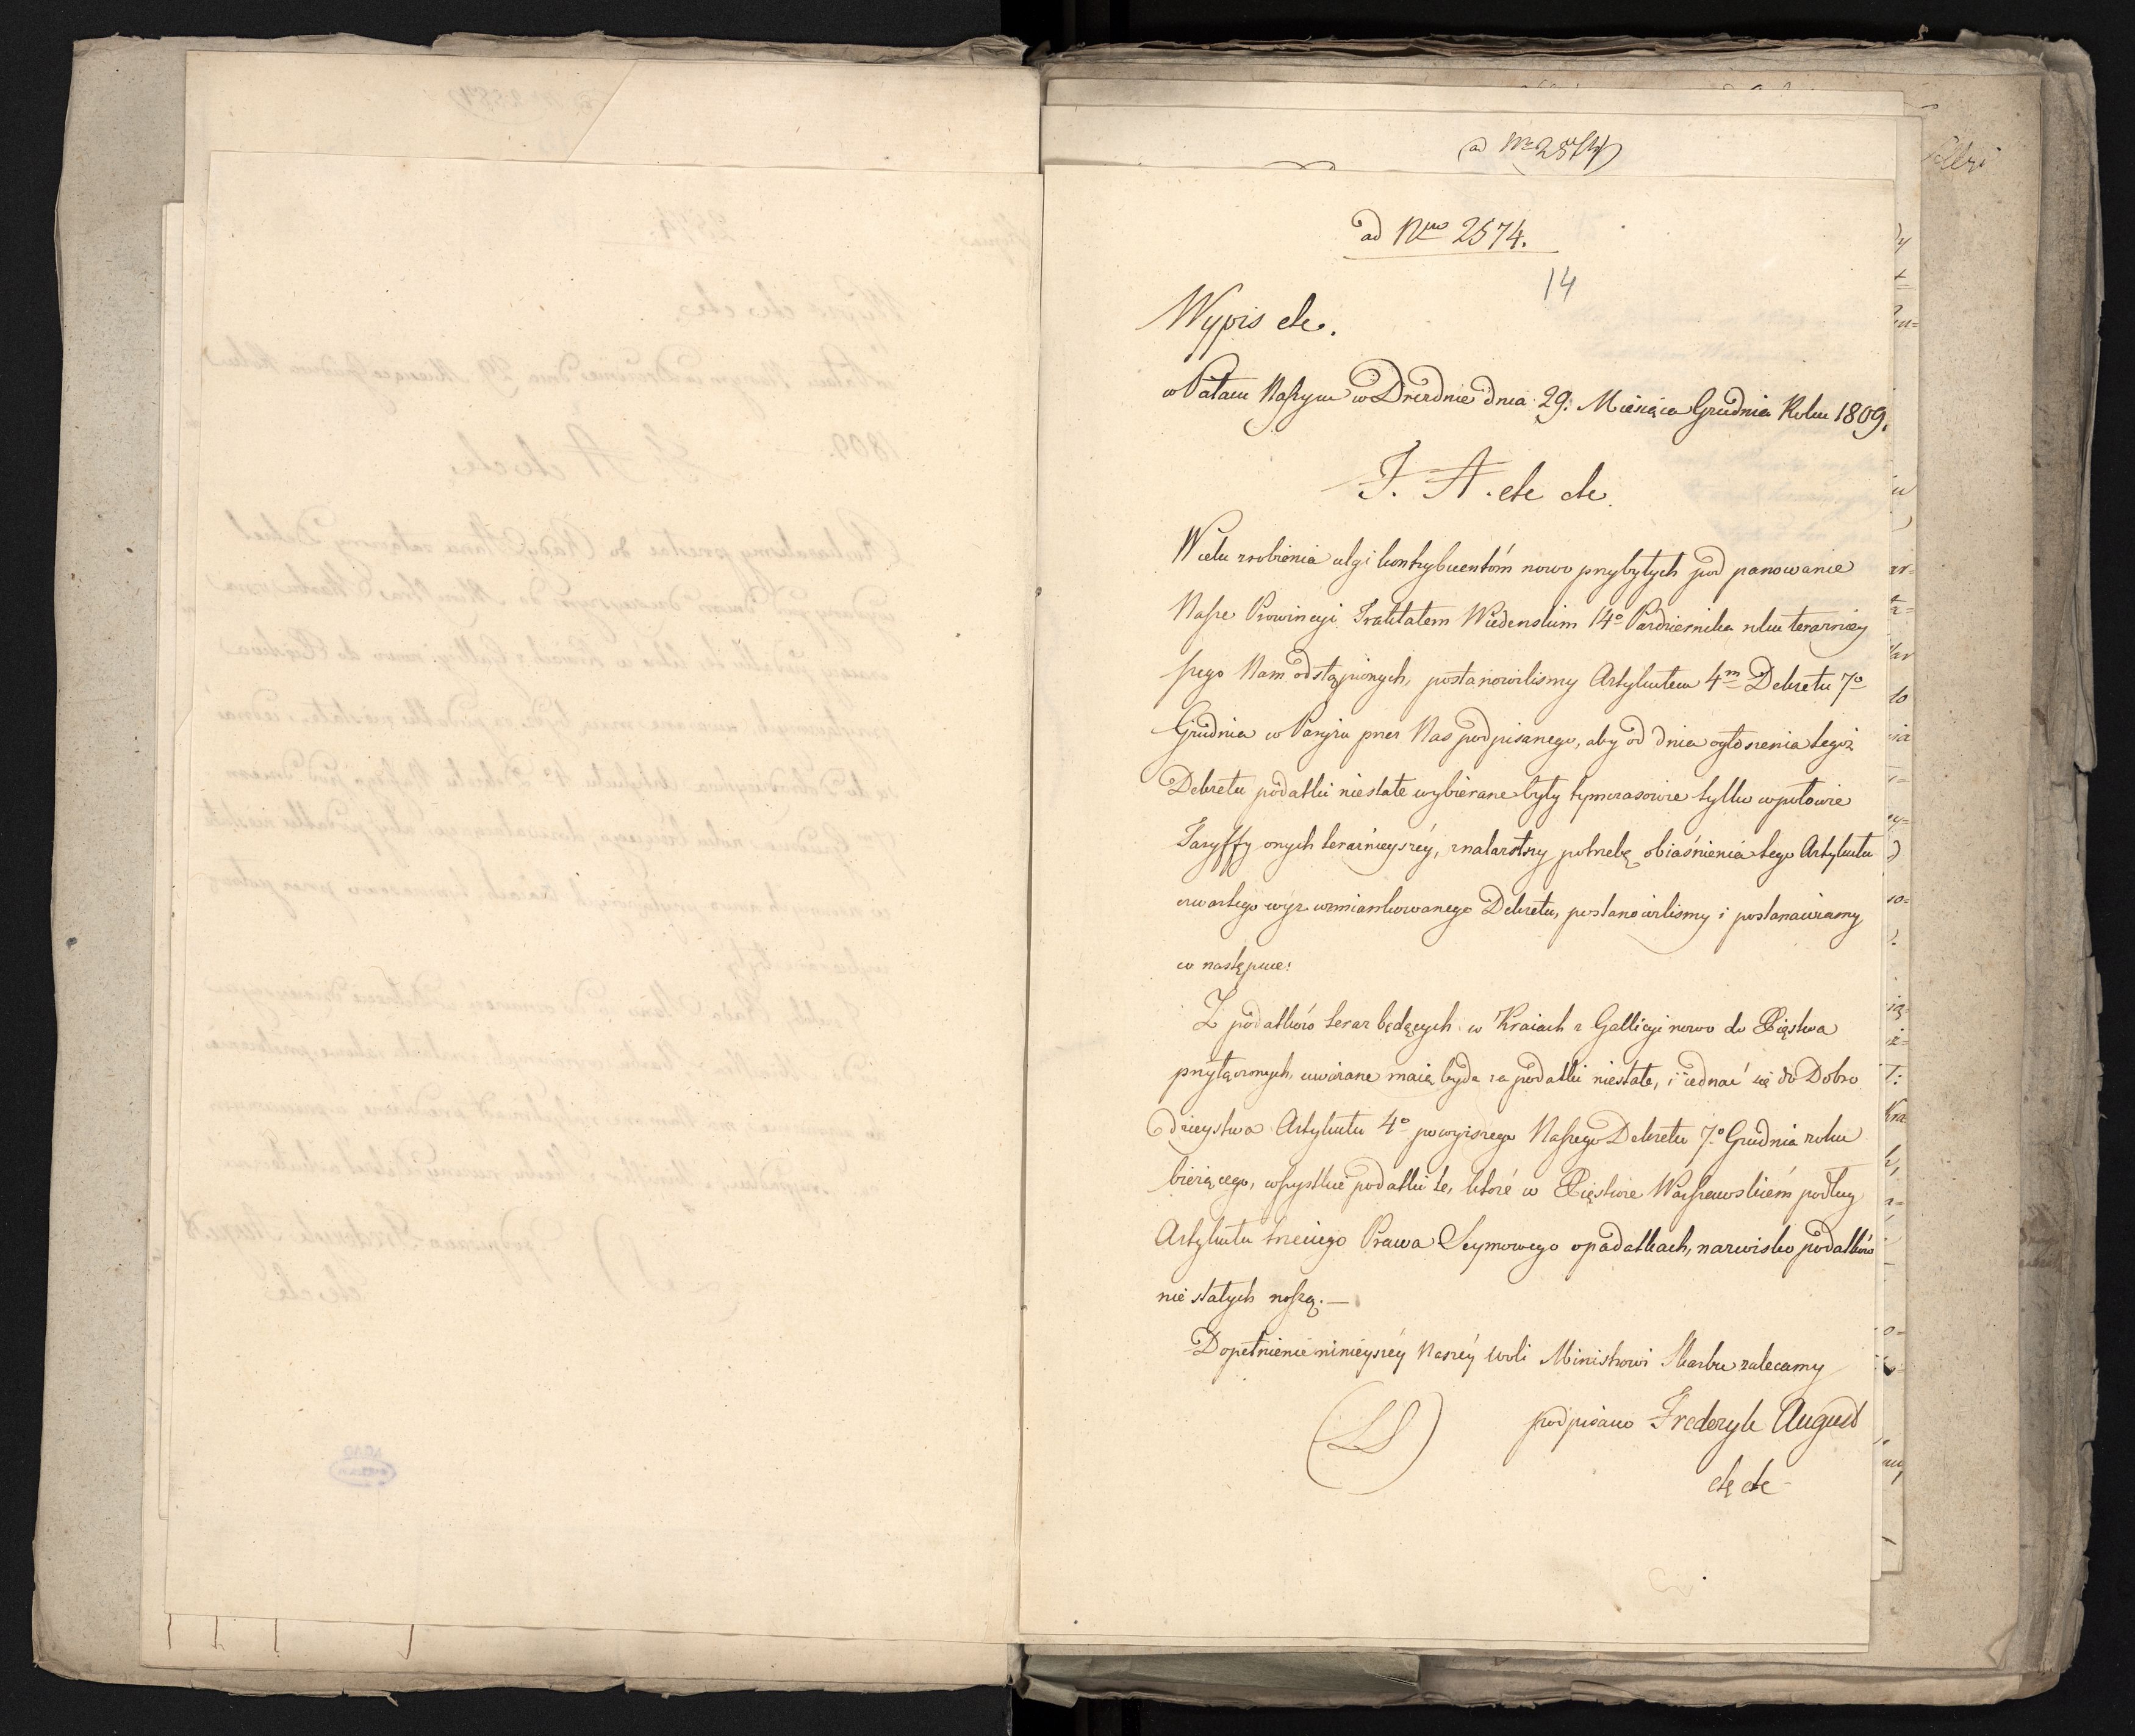 ad Nro 2574.
14
Wypis etc.
w Pałacu Naszym w Dreźdnie dnia 29. Miesiąca Grudnia Roku 1809.
F. A. etc etc.
W celu zrobienia ulgi kontrybuentóm nowo przybyłych pod panowanie
Nasze Prowincyi Traktatem Wiedenskim 14o Pazdziernika roku teraźniey
szego Nam odstąpionych, postanowilismy Artykułem 4m Dekretu 7o
Grudnia w Paryżu przez Nas podpisanego, aby od dnia ogłoszenia tegoż
Dekretu podatki niestałe wybierane były tymczasowie tylko w połowie
Taryffy onych teraźnieyszéy, znalazłszy potrzebę obiaśnienia tego Artykułu
czwartego wyż wzmiankowanego Dekretu, postanowilismy i postanawiamy
co następuie:
Z podatków teraz będących w Kraiach z Gallicyi nowo do Xięstwa
przyłączonych, uważane maią bydź za podatki niestałe, i iednać się do Dobro
dzieystwa Artykułu 4o powyższego Naszego Dekretu 7o Grudnia roku
bieżącego, wszystkie podatki te, które w Xięstwie Warszawskiém podług
Artykułu trzeciego Prawa Seymowego o podatkach, nazwisko podatków
nie stałych noszą. —
Dopełnienie ninieyszéy Naszéy woli Ministrowi Skarbu zalecamy
(LS) podpisano Fryderyk August
etc etc